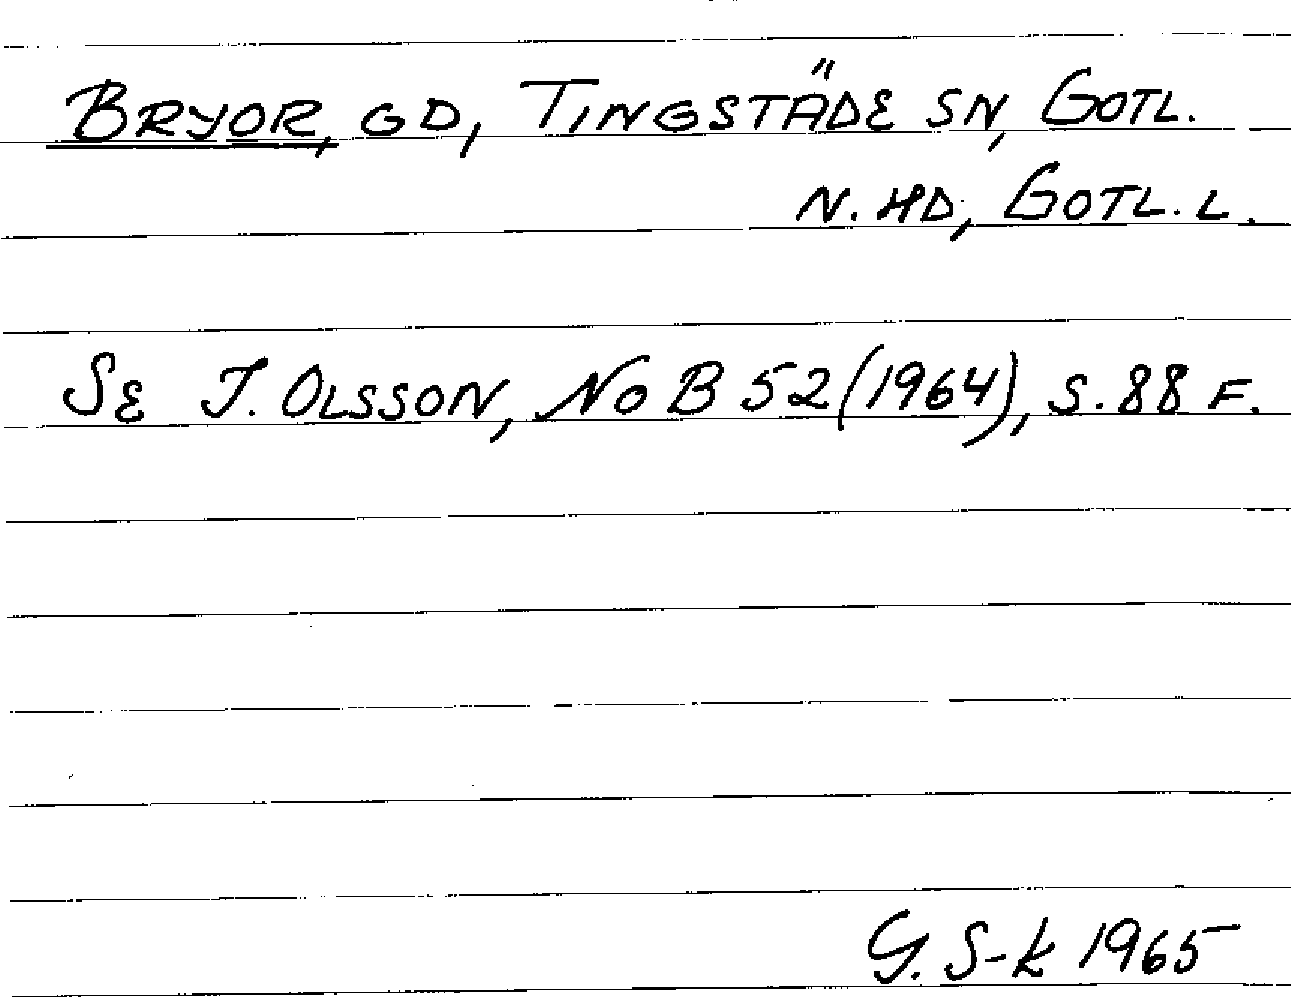 BRYOR, GD, TINGSTÄDE SN, GOTL.
N. HD, GOTL. L.
SE I. OLSSON, NoB 52 (1964), S. 88 F.
G. S-k 1965